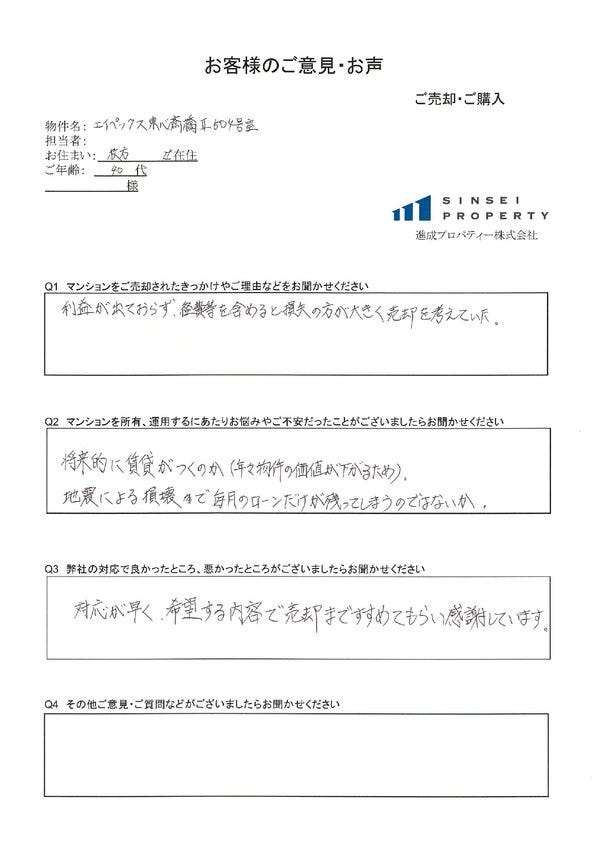 お客様のご意見・お声
ご売却・ご購入
物件名： エイペックス東心斎橋Ⅱ504号室
担当者：
お住まい： 枚方 ご在住
ご年齢： 40 代
様
SINSEI
PROPERTY
進成プロパティー株式会社
Q1 マンションをご売却されたきっかけやご理由などをお聞かせください
利益が出ておらず、経費等を含めると損失の方が大きく売却を考えていた。
Q2 マンションを所有、運用するにあたりお悩みやご不安だったことがございましたらお聞かせください
将来的に賃貸がつくのか（年々物件の価値が下がるため）。
地震による損壊 で毎月のローンだけが残ってしまうのではないか。
Q3 弊社の対応で良かったところ、悪かったところがございましたらお聞かせください
対応が早く、希望する内容で売却まですすめてもらい感謝しています。
Q4 その他ご意見・ご質問などがございましたらお聞かせください